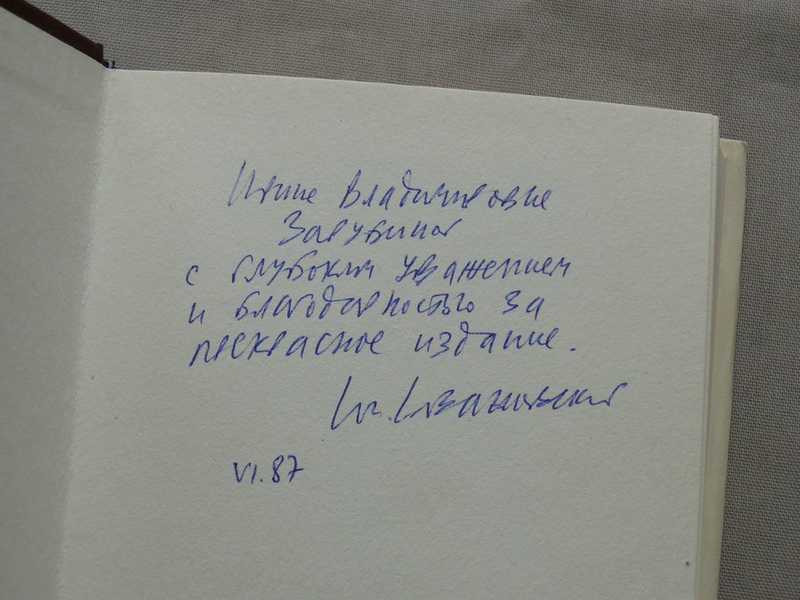 Ирине Владимировне
Зарубиной
с глубоким уважением
и благодарностью за
прекрасное издание.
VI.87